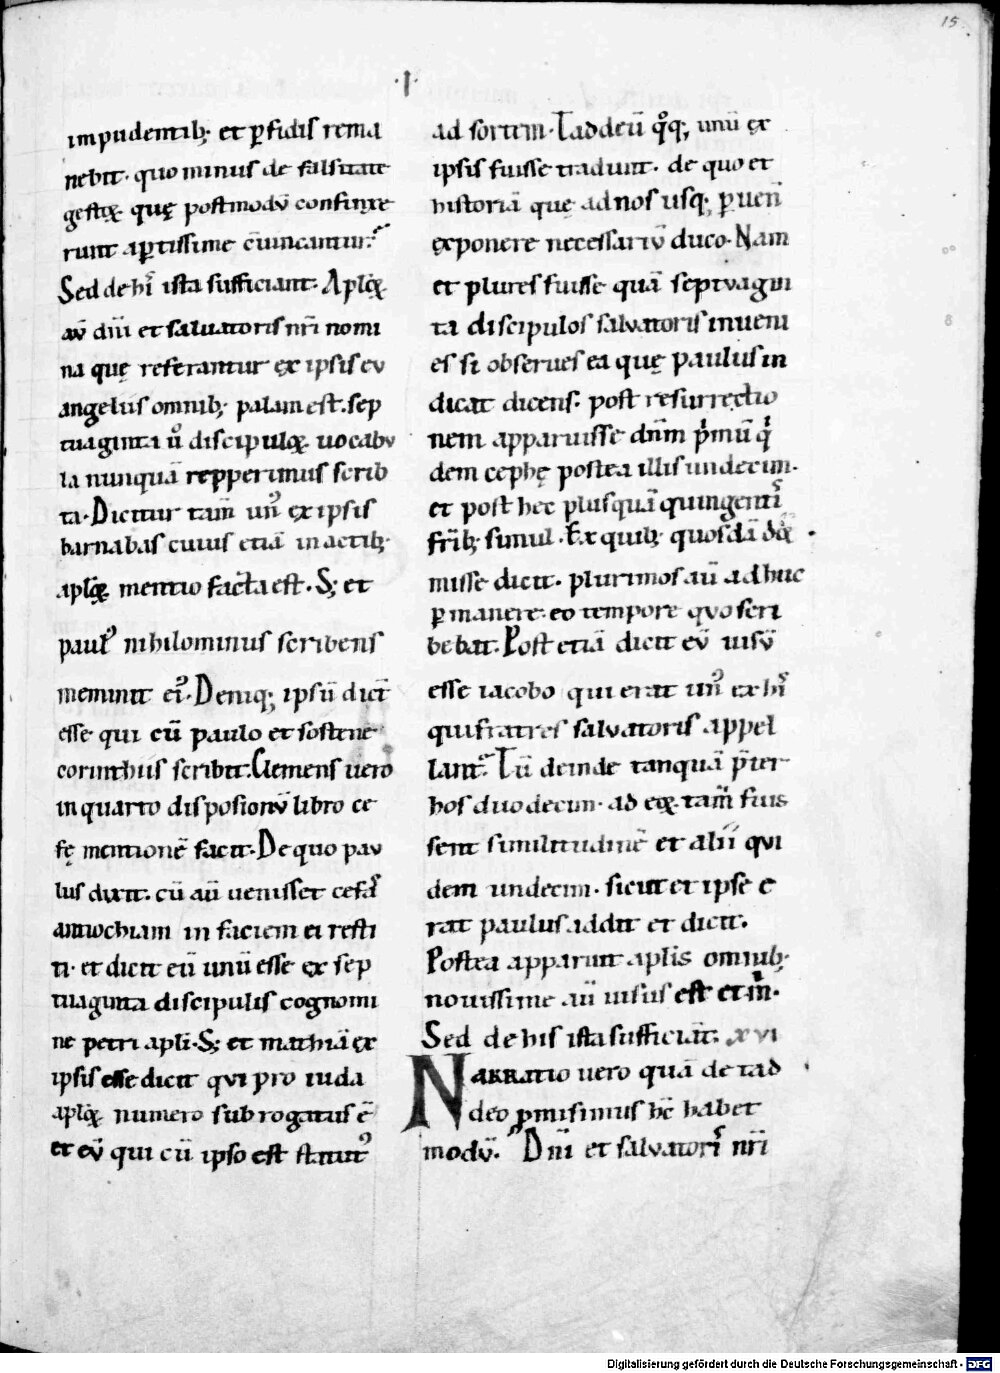 15
·I·
impudentib; et ꝑfidis rema
nebit. quo minus de falsitate
gestoꝝ quę postmodū confinxe
runt aꝑtissime c̄uincantur.
Sed de hi̾ ista sufficiant. Aplōꝝ
aū dn̄i et saluatoris nr̄i nomi
na quę referantur ex ipsis eu
angeliis omnib; palam est. sep
tuaginta ů discipuloꝝ uocabu
la nunquā repperimus scrib
ta. Dicitur tam̄ un᷒ ex ipsis
barnabas cuius etiā in actib;
aplōꝝ mentio facta est. S; et
paul᷒ nihilominus scribens
meminit ei᷒. Deniq; ipsū dict̄
esse qui cū paulo et sostene
corinthiis scribit. Clemens uero
in quarto disposionū libro ce
fę mentionē facit. De quo pau
lus dicit. cū aū uenisset cefas
antiochiam in faciem ei resti
ti. et dicit eū unū esse ex sep
tuaginta discipulis cognomi
ne petri apli. S; et mathiā ex
ipsis esse dicit qui pro iuda
aplōꝝ numero subrogatus ē
et eū qui cū ipso est statut᷒
ad sortem. Taddeū qͦq;, unū ex
ipsis fuisse tradunt. de quo et
historiā quę ad nos usq; ꝑuen̄
exponere necessariū duco. Nam
et plures fuisse quā septuagin
ta discipulos salvatoris inueni
es si obserues ea quę paulus in
dicat dicens. post resurrectio
nem apparuisse dn̄m pͥmū qͥ
dem cephę postea illis undecim.
et post hec plusquā quingentis
frīb; simul. Ex quib; quosdā dor
misse dicit. plurimos aū adhuc
ꝑmanere. eo tempore quo scri
bebat. Post etiā dicit eū uisū
esse iacobo qui erat un᷒ ex hi̾
qui fratres salvatoris appel
lant᷑. Tū deinde tanquā p̄ter
hos duodecim. ad eoꝝ. tam̄ fuis
sent similitudinē et alii qui
dem undecim. sicut et ipse e
rat paulus addit et dicit.
Postea apparuit aplīs omnib;
nouissime aū uisus est et m̄.
Sed de his ista sufficiāt. xvi
Narratio uero quā de tad
deo ꝓmisimus hc̄ habet
modū. Dn̄i et salvatoris nr̄i
Digitalisierung gefördert durch die Deutsche Forschungsgemeinschaft - DFG